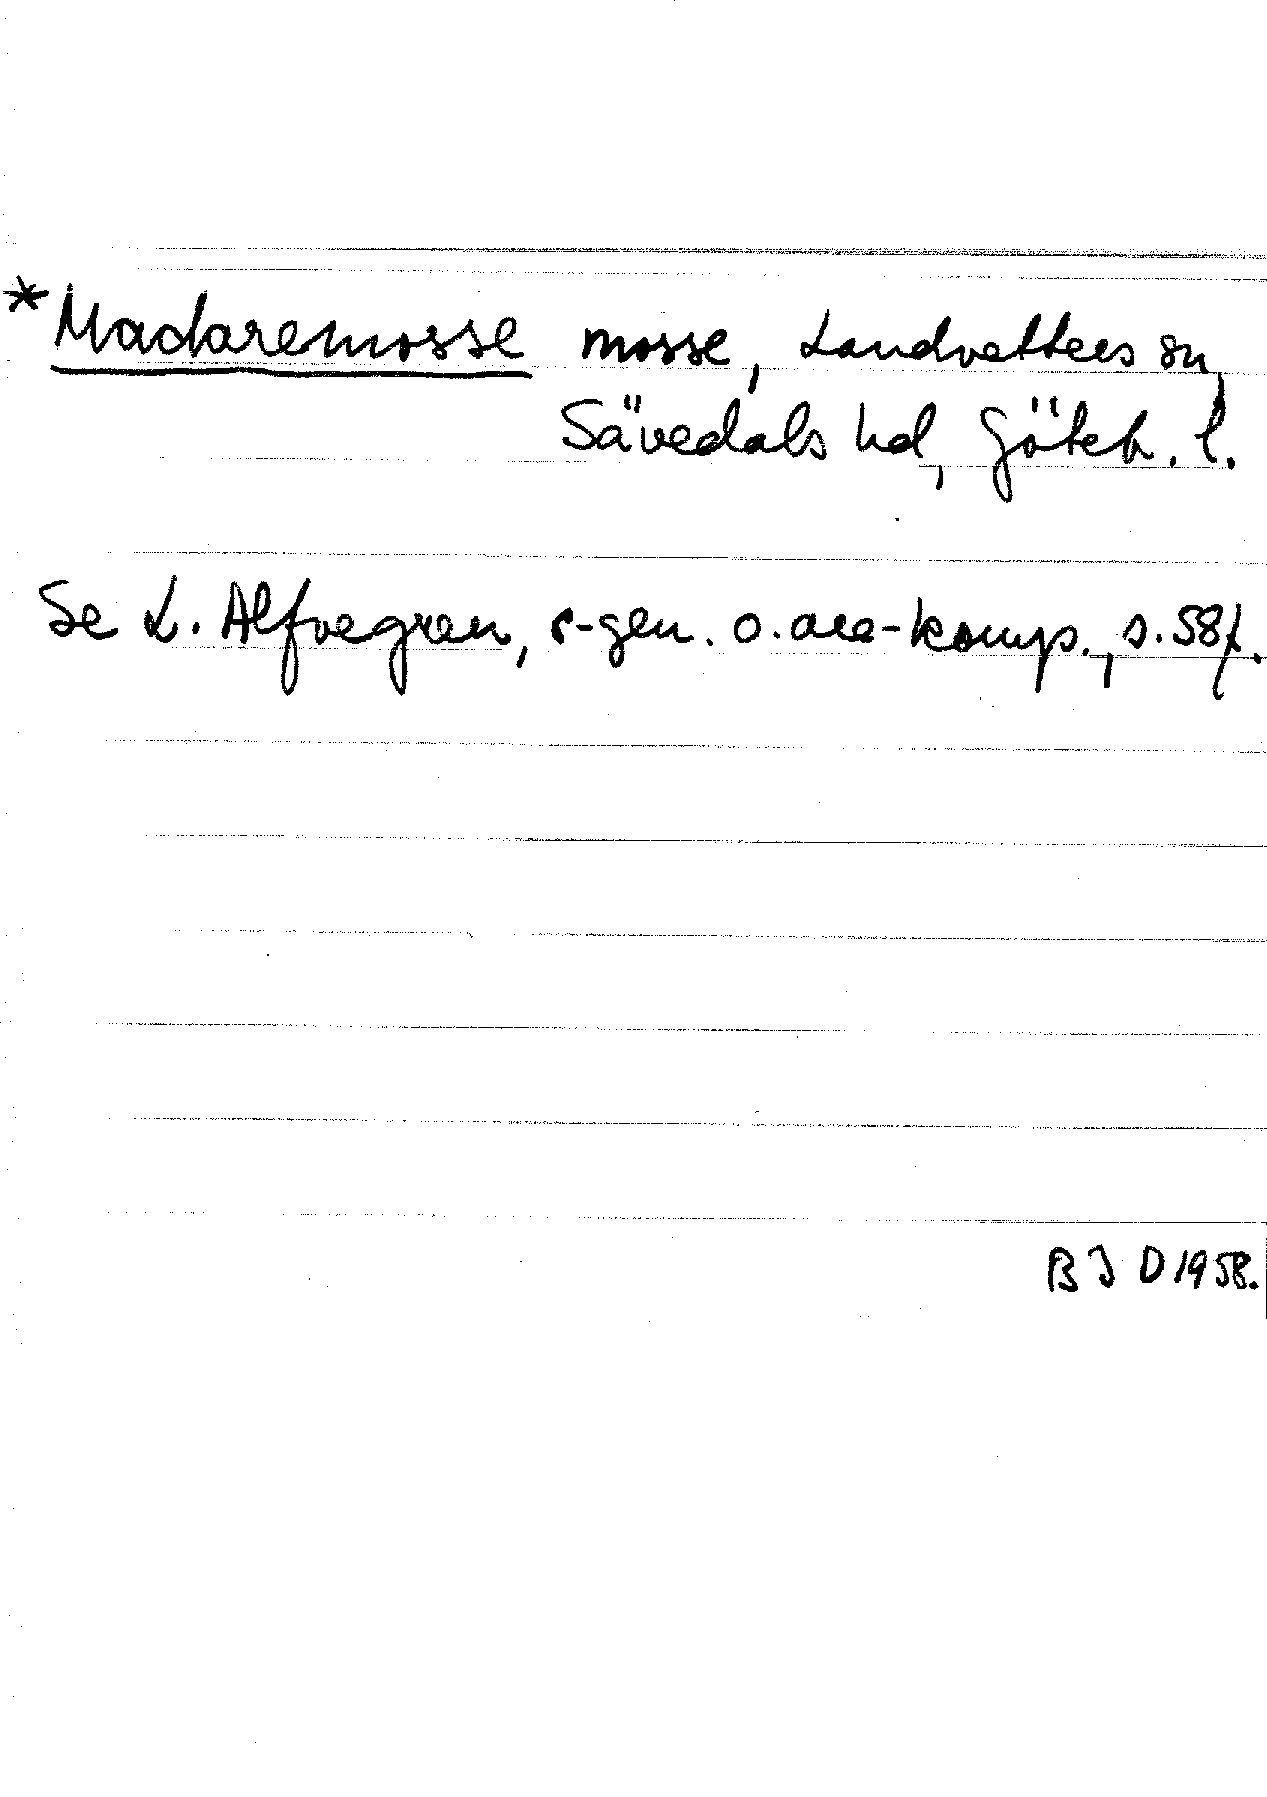 *Madaremosse mosse, Landvetters sn,
Sävedals hd, Göteb. l.
Se L. Alfvegren, r-gen. o. are-komp., s. 58f.
B J D 1958.